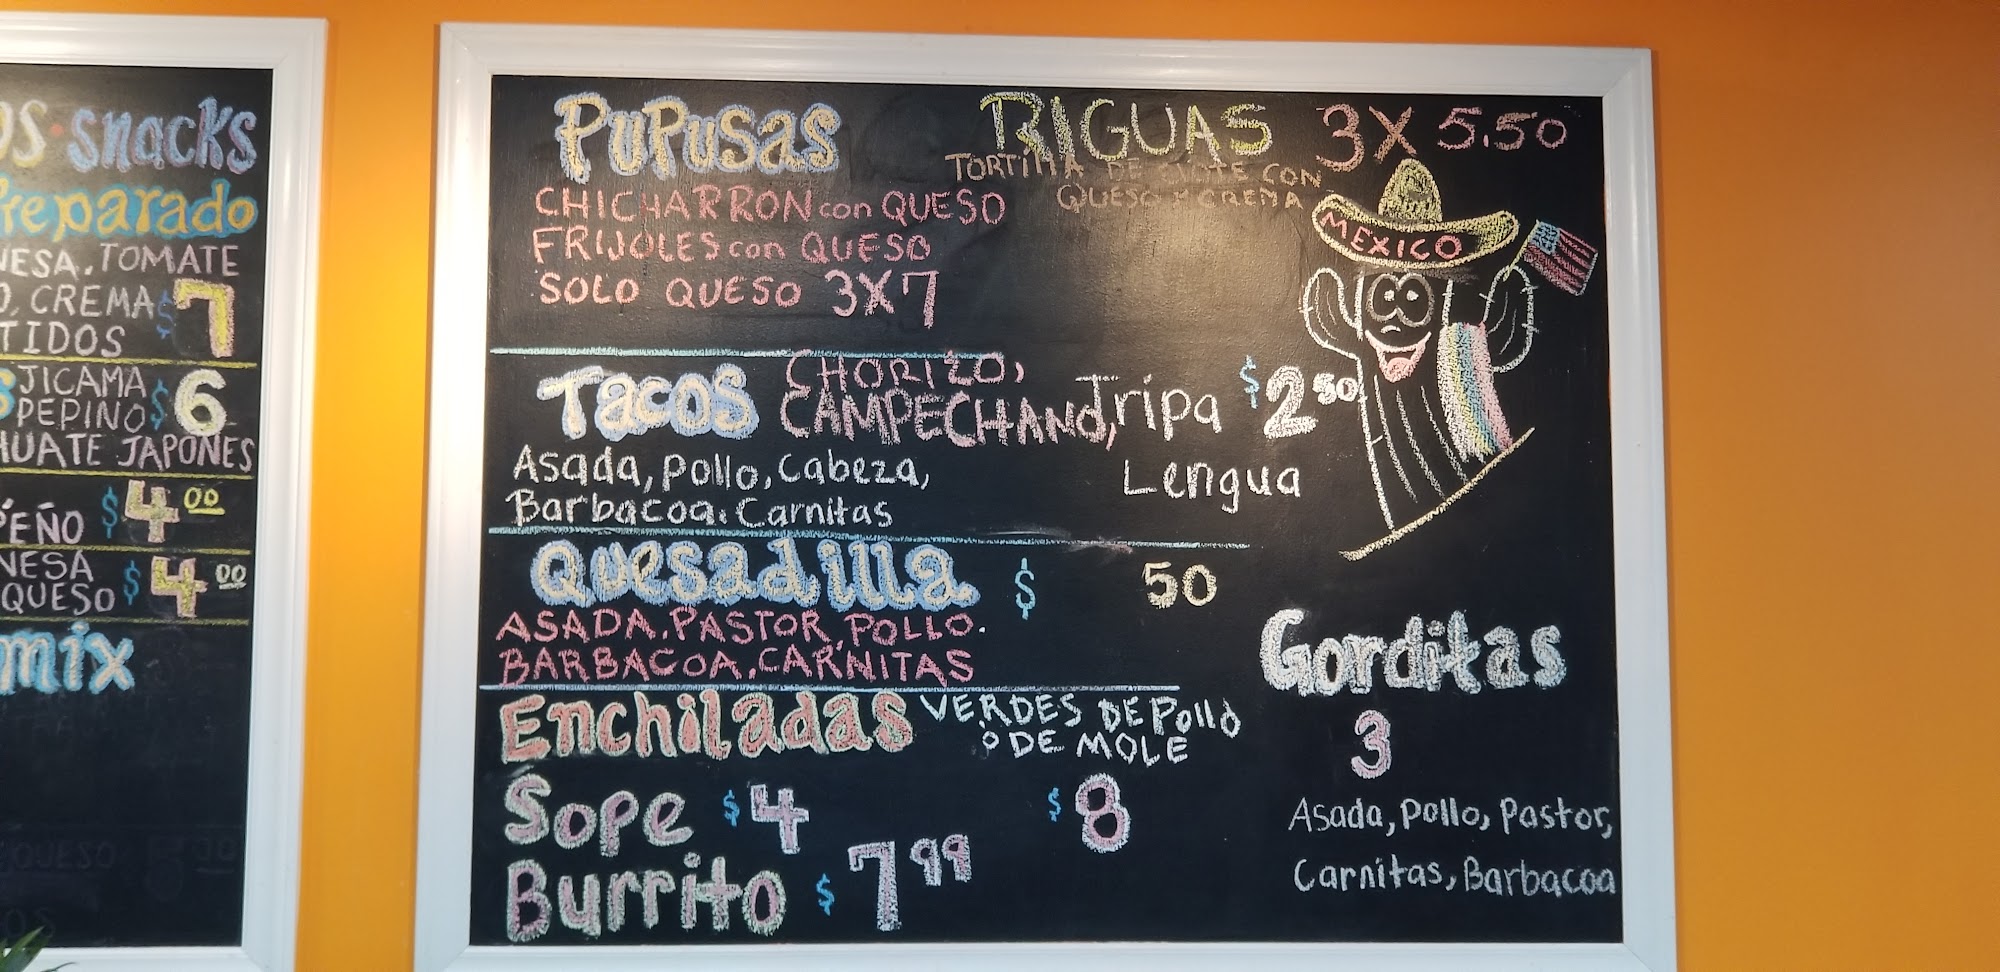 snacks
Preparado
TOMATE
CREMA $7
JICAMA
PEPINO $6
JAPONES
$4 00
$4 00
QUESO
mix
PUPUSAS
CHICHARRON con QUESO
FRIJOLES con QUESO
SOLO QUESO 3X7
RIGUAS 3X 5.50
TORTILLA DE ELOTE CON
QUESO Y CREMA
MEXICO
Tacos CHORIZO,
CAMPECHANO, Tripa $2 50
Lengua
Asada, pollo, Cabeza,
Barbacoa. Carnitas
Quesadilla $ 50
ASADA. PASTOR, POLLO.
BARBACOA. CARNITAS
Enchiladas VERDES DE POLLO
O DE MOLE
$8
Sope $4
Burrito $7 99
Gorditas
3
Asada, pollo, Pastor,
Carnitas, Barbacoa